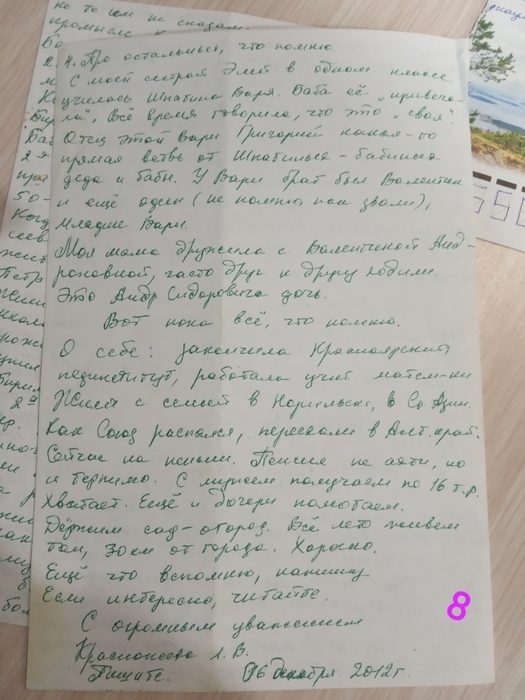 4. Про остальных, что помню.
С моей сестрой Элей в одном классе
училась Шпагина Варя. Баба её "привеча-
ла", всё время говорила, что это "своя".
Отец этой Вари Григорий какая-то
прямая ветвь от Шпагиных - бабиных
деда и бабы. У Вари брат был Валентин
и ещё один (не помню, как звали),
младше Вари.
Моя мама дружила с Валентиной Анд-
роновной, часто друг к другу ходили.
Это Андр Сидоровича дочь.
Вот пока всё, что помню.
О себе: закончила Красноярский
пединститут, работала учит. матем-ки
Жили с семьёй в Норильске, в Ср. Азии.
Как Союз распался, переехали в Алт. край.
Сейчас на пенсии. Пенсия не ахти, но
и терпимо. С мужем получаем по 16 т.р.
Хватает. Ещё и дочери помогаем.
Держим сад-огород. Всё лето живём
там, 30 км от города. Хорошо.
Ещё что вспомню, напишу
Если интересно, читайте.
С огромным уважением
Л. В.
Пишите. 06 декабря 2012 г.
8